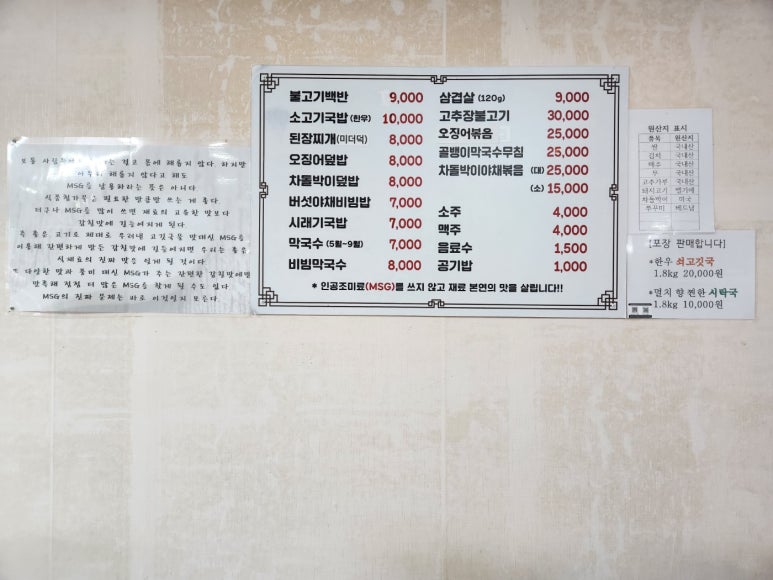 보통 사람
걸고 몸에 해롭지 않다. 하지만
해롭지 않다고 해도
MSG를 남용하라는 뜻은 아니다.
식품첨가물은 필요한 만큼만 쓰는 게 좋다.
더구나 MSG를 많이 쓰면 재료의 고유한 맛보다
감칠맛에 길들여지게 된다.
즉 좋은 고기로 제대로 우려낸 고깃국물 맛대신 MSG를
이용해 간편하게 만든 감칠맛에 길들여지면 우리는 좋은
식재료의 진짜 맛을 잃게 될 것이다.
또 다양한 맛과 풍미 대신 MSG가 주는 간편한 감칠맛에만
만족해 점점 더 많은 MSG를 찾게 될 수도 있다.
MSG의 진짜 문제는 바로 이것일지 모른다.
불고기백반 9,000
소고기국밥 (한우) 10,000
된장찌개 (미더덕) 8,000
오징어덮밥 8,000
차돌박이덮밥 8,000
버섯야채비빔밥 7,000
시래기국밥 7,000
막국수 (5월~9월) 7,000
비빔막국수 8,000
삼겹살 (120g) 9,000
고추장불고기 30,000
오징어볶음 25,000
골뱅이막국수무침 25,000
차돌박이야채볶음 (대) 25,000
(소) 15,000
소주 4,000
맥주 4,000
음료수 1,500
공기밥 1,000
* 인공조미료(MSG)를 쓰지 않고 재료 본연의 맛을 살립니다!!
원산지 표시
품목 원산지
쌀 국내산
김치 국내산
배추 국내산
무 국내산
고추가루 국내산
돼지고기 벨기에
차돌박이 미국
쭈꾸미 베트남
[포장 판매합니다]
*한우 쇠고깃국
1.8kg 20,000원
*멸치 향 찐한 시락국
1.8kg 10,000원